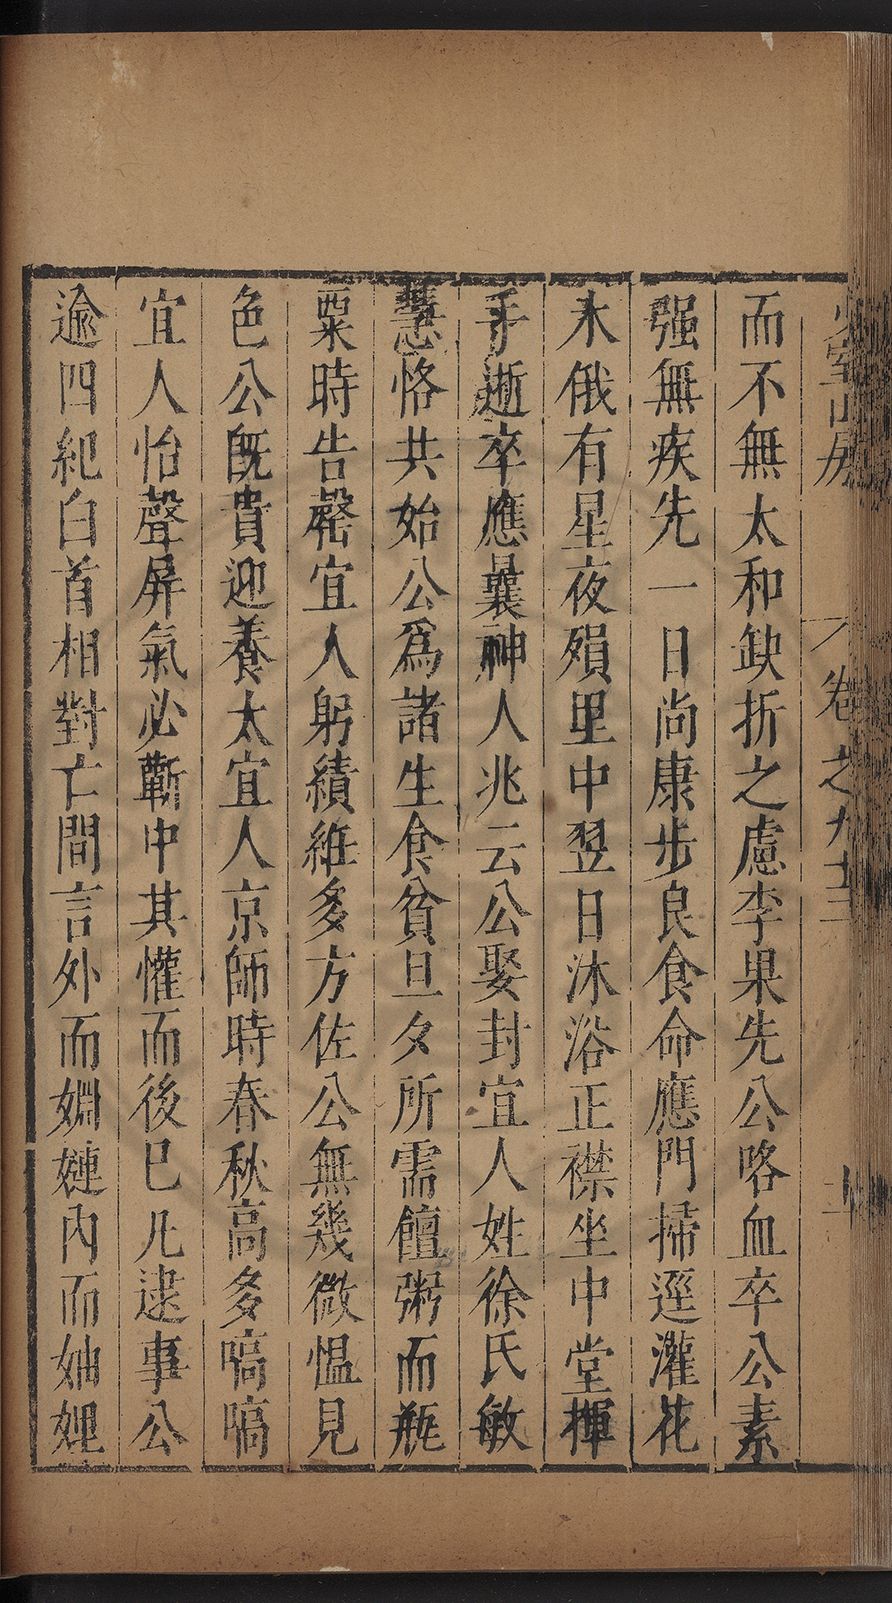 少室山房
卷之九十三
而不無太和缺折之慮李果先公咯血卒公素
强無疾先一日尚康步良食命應門掃逕灌花
木俄有星夜殞里中翌日沐浴正襟坐中堂揮
手逝卒應曩神人兆云公娶封宜人姓徐氏敏
慧恪共始公爲諸生食貧旦夕所需饘粥而瓶
粟時告罄宜人躬績維多方佐公無幾微慍見
色公旣貴迎養太宜人京師時春秋高多嗃嗃
宜人怡聲屏氣必蘄中其懽而後已凡逮事公
逾四紀白首相對亡間言外而婣㜻內而妯娌